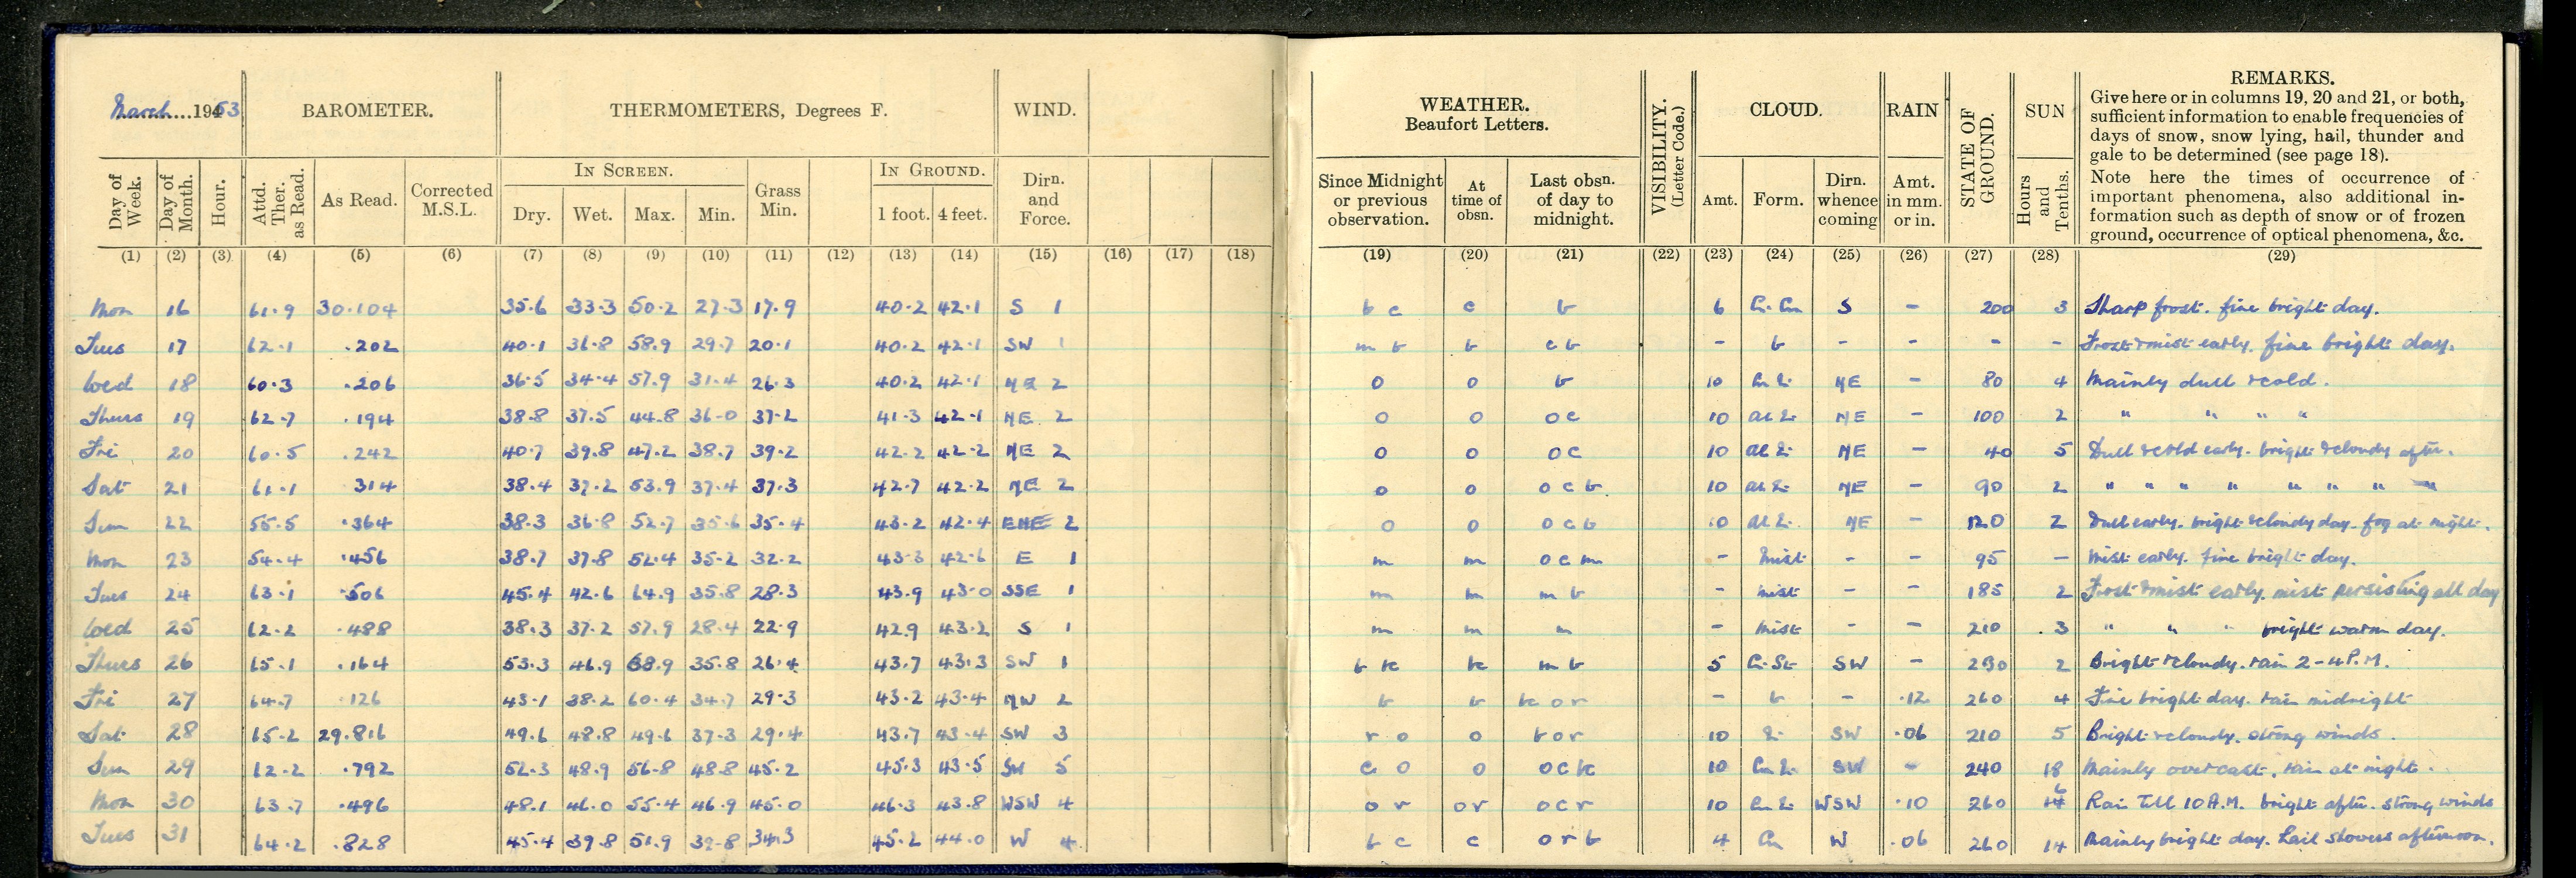 March 1953 BAROMETER. THERMOMETERS, Degrees F. WIND.
IN SCREEN. IN GROUND.
Day of Week. Day of Month. Hour. Attd. Ther. as Read. As Read. Corrected M.S.L. Dry. Wet. Max. Min. Grass Min. 1 foot. 4 feet. Dirn. and Force.
(1) (2) (3) (4) (5) (6) (7) (8) (9) (10) (11) (12) (13) (14) (15) (16) (17) (18)
Mon 16 61.9 30.104 35.6 33.3 50.2 27.3 17.9 40.2 42.1 S 1
Tues 17 62.1 .202 40.1 36.8 58.9 29.7 20.1 40.2 42.1 SW 1
Wed 18 60.3 .206 36.5 34.4 57.9 31.4 26.3 40.2 42.1 NE 2
Thurs 19 62.7 .194 38.8 37.5 44.8 36.0 37.2 41.3 42.1 NE 2
Fri 20 60.5 .242 40.7 39.8 47.2 38.7 39.2 42.2 42.2 NE 2
Sat 21 61.1 .314 38.4 37.2 53.9 37.4 37.3 42.7 42.2 NE 2
Sun 22 55.5 .364 38.3 36.8 52.7 35.6 35.4 43.2 42.4 2
Mon 23 54.4 .456 38.7 37.8 52.4 35.2 32.2 43.3 42.6 E 1
Tues 24 63.1 .506 45.4 42.6 64.9 35.8 28.3 43.9 43.0 SSE 1
Wed 25 62.2 .488 38.3 37.2 57.9 28.4 22.9 42.9 43.2 S 1
Thurs 26 65.1 .164 53.3 46.9 68.9 35.8 26.4 43.7 43.3 SW 1
Fri 27 64.7 .126 43.1 38.2 60.4 34.7 29.3 43.2 43.4 NW 2
Sat 28 65.2 29.816 49.6 48.8 49.6 37.3 29.4 43.7 43.4 SW 3
Sun 29 62.2 .792 52.3 48.9 56.8 48.8 45.2 45.3 43.5 SW 5
Mon 30 63.7 .496 48.1 46.0 55.4 46.9 45.0 46.3 43.8 WSW 4
Tues 31 64.2 .828 45.4 39.8 51.9 39.8 34.3 45.2 44.0 W 4
WEATHER. Beaufort Letters. VISIBILITY. (Letter Code.) CLOUD. RAIN STATE OF GROUND. SUN REMARKS.
Give here or in columns 19, 20 and 21, or both,
sufficient information to enable frequencies of
days of snow, snow lying, hail, thunder and
gale to be determined (see page 18).
Note here the times of occurrence of
important phenomena, also additional in-
formation such as depth of snow or of frozen
ground, occurrence of optical phenomena, &c.
Since Midnight or previous observation. At time of obsn. Last obsn. of day to midnight. Amt. Form. Dirn. whence coming Amt. in mm. or in. Hours and Tenths.
(19) (20) (21) (22) (23) (24) (25) (26) (27) (28) (29)
b c c b 6 S - 200 3 Sharp frost. fine bright day.
m b b c b - b - - - - Frost & mist early. fine bright day.
o o b 10 NE - 80 4 Mainly dull & cold.
o o o c 10 NE - 100 2 " " " "
o o o c 10 NE - 40 5 Dull & cold early. bright & cloudy after.
o o o c b 10 NE - 90 2 " " " " " " " "
o o o c b 10 NE - 120 2 Dull early. bright & cloudy day. fog at night.
m m o c m - mist - - 95 - Mist early. fine bright day.
m m m b - mist - - 185 2 Frost & mist early. mist persisting all day
m m m - mist - - 210 3 " " " bright warm day.
b bc bc m b 5 Ci-St SW - 230 2 Bright & cloudy. rain 2-4 P.M.
b b bc o r - b - .12 260 4 Fine bright day. rain midnight
r o o b o r 10 SW .06 210 5 Bright & cloudy. strong winds.
c o o o c bc 10 SW - 240 18 Mainly overcast, rain at night.
o r o r o c r 10 WSW .10 260 Rain till 10 A.M. bright after. strong winds
b c c o r b 4 Cu W .06 260 14 Mainly bright day. Hail showers afternoon.